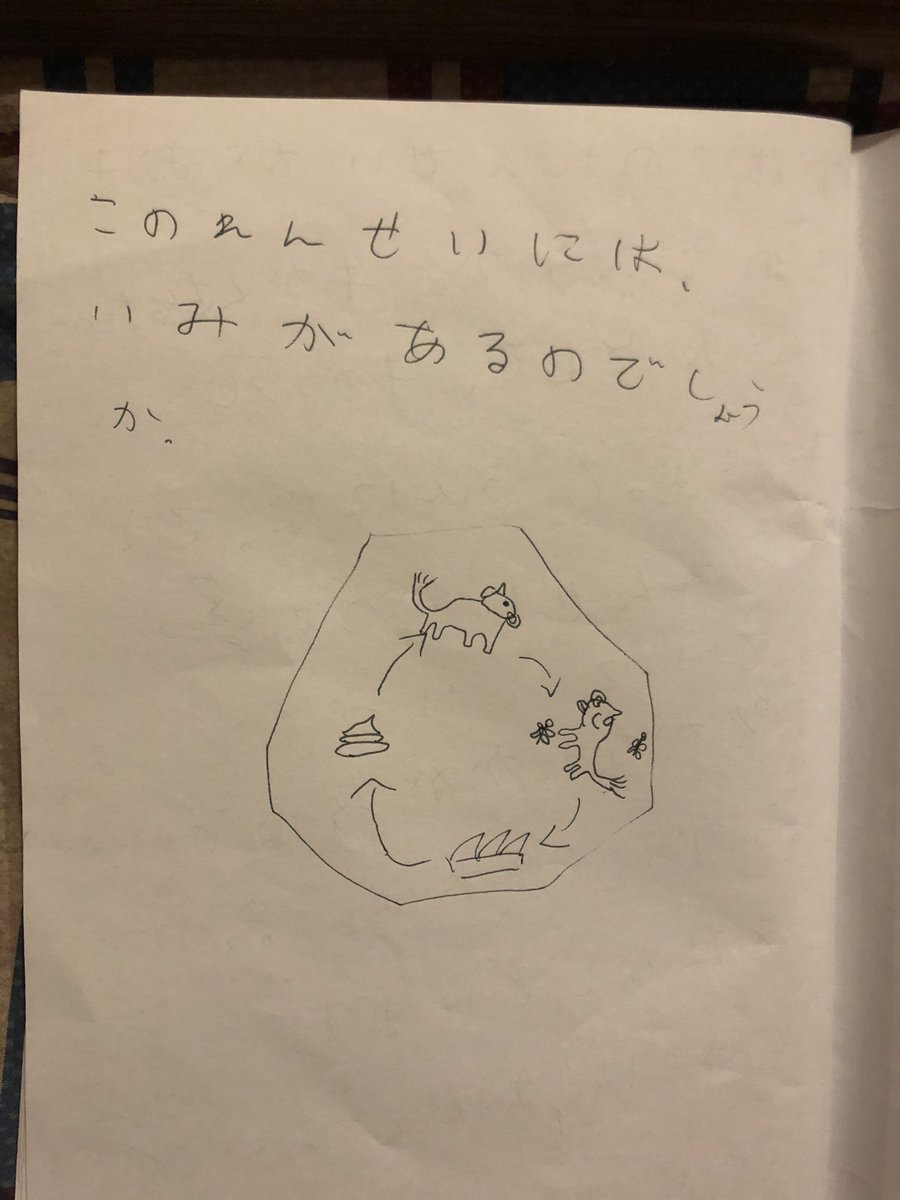 このれんせいには、
いみがあるのでしょう
か。